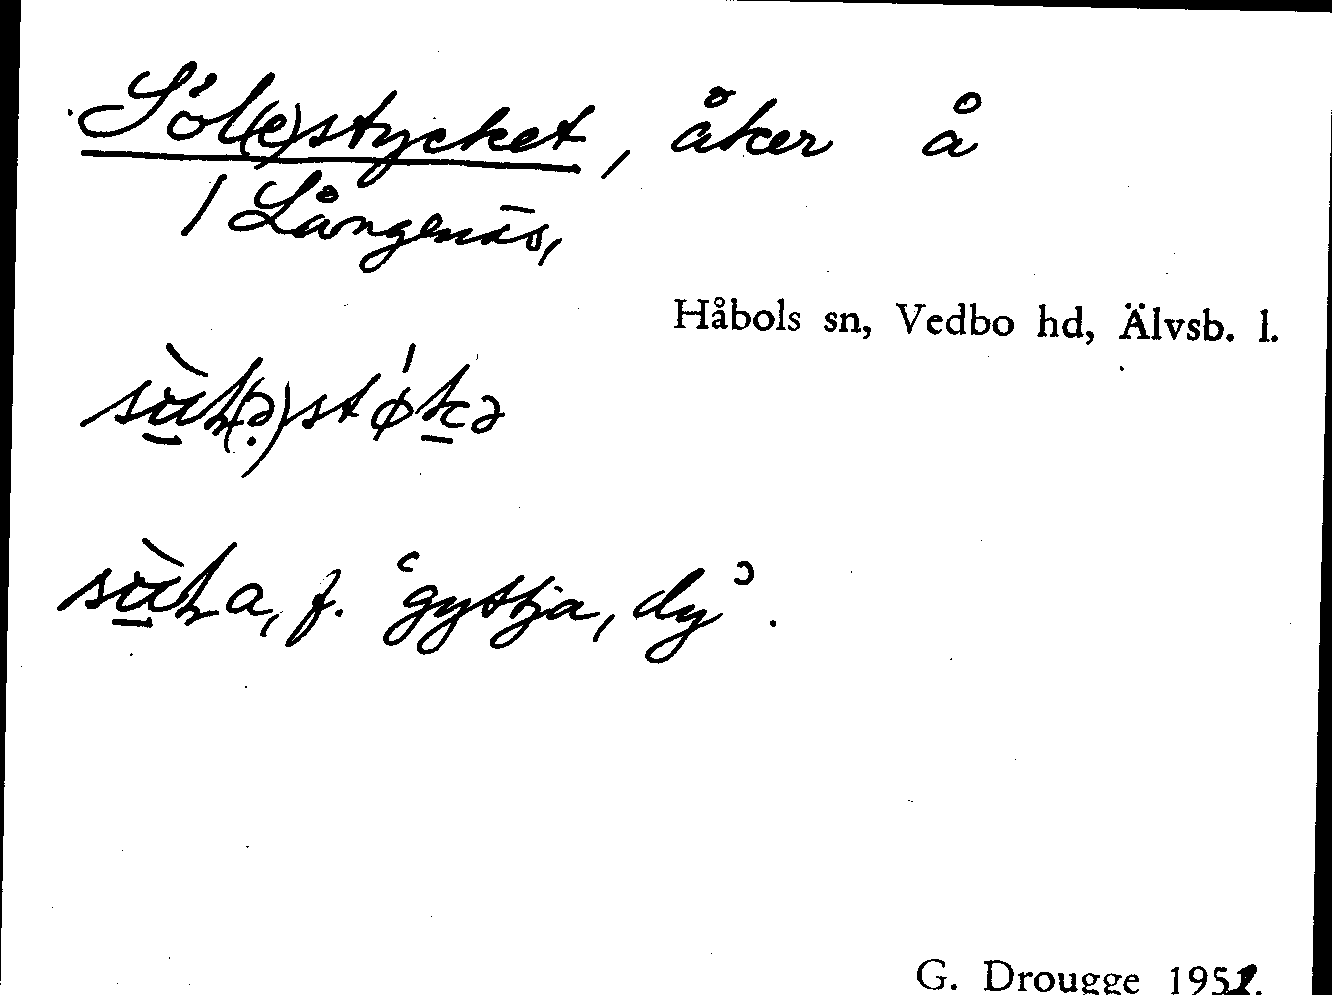 Söl(e)stycket, åker å
/ Långenäs,
Håbols sn, Vedbo hd, Älvsb. l.
f. ‘gyttja, dy’.
G. Drougge 1951.